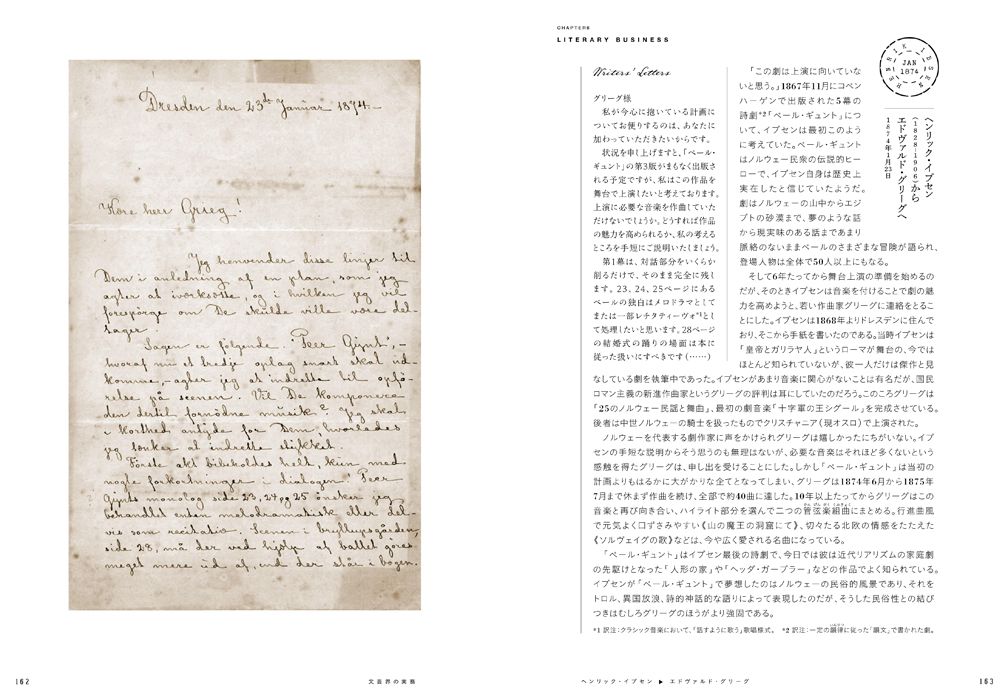 Dresden den 23de Januar 1874.
Kære herr Grieg!
Jeg henvender disse linjer til
Dem i anledning af en plan, som jeg
agter at iværksætte, og i hvilken jeg vil
forespørge om De skulde ville være del-
tager.
Sagen er følgende. "Peer Gynt",
hvoraf nu et tredje oplag snart skal ud-
komme, agter jeg at indrette til opfø-
relse på scenen. Vil De komponere
den dertil fornødne musik? Jeg skal
i korthed antyde for Dem, hvorledes
jeg tænker at indrette stykket.
Første akt bibeholdes helt, kun med
nogle forkortninger i dialogen. Peer
Gynts monolog side 23, 24 og 25 ønsker jeg
behandlet enten melodramatisk eller del-
vis som recitativ. Scenen i bryllupsgården,
side 28, må der ved hjælp af ballet gøres
meget mere ud af, end der står i bogen.
162
文芸界の実務
CHAPTER6
LITERARY BUSINESS
Writers' Letters
グリーグ様
私が今心に抱いている計画に
ついてお便りするのは、あなたに
加わっていただきたいからです。
状況を申し上げますと、「ペール・
ギュント」の第3版がまもなく出版さ
れる予定ですが、私はこの作品を
舞台で上演したいと考えております。
上演に必要な音楽を作曲していた
だけないでしょうか。どうすれば作品
の魅力を高められるか、私の考える
ところを手短にご説明いたしましょう。
第1幕は、対話部分をいくらか
削るだけで、そのまま完全に残し
ます。23、24、25ページにある
ペールの独白はメロドラマとして
または一部レチタティーヴォ*1とし
て処理したいと思います。28ページ
の結婚式の踊りの場面は本に
従った扱いにすべきです(……)
「この劇は上演に向いていな
いと思う。」1867年11月にコペン
ハーゲンで出版された5幕の
詩劇*2「ペール・ギュント」につ
いて、イプセンは最初このよう
に考えていた。ペール・ギュント
はノルウェー民衆の伝説的ヒー
ローで、イプセン自身は歴史上
実在したと信じていたようだ。
劇はノルウェーの山中からエジ
プトの砂漠まで、夢のような話
から現実味のある話まであまり
脈絡のないままペールのさまざまな冒険が語られ、
登場人物は全体で50人以上にもなる。
そして6年たってから舞台上演の準備を始めるの
だが、そのときイプセンは音楽を付けることで劇の魅
力を高めようと、若い作曲家グリーグに連絡をとるこ
とにした。イプセンは1868年よりドレスデンに住んで
おり、そこから手紙を書いたのである。当時イプセンは
「皇帝とガリラヤ人」というローマが舞台の、今では
ほとんど知られていないが、彼一人だけは傑作と見
なしている劇を執筆中であった。イプセンがあまり音楽に関心がないことは有名だが、国民
ロマン主義の新進作曲家というグリーグの評判は耳にしていたのだろう。このころグリーグは
「25のノルウェー民謡と舞曲」、最初の劇音楽「十字軍の王シグール」を完成させている。
後者は中世ノルウェーの騎士を扱ったものでクリスチャニア(現オスロ)で上演された。
ノルウェーを代表する劇作家に声をかけられグリーグは嬉しかったにちがいない。イプ
センの手短な説明からそう思うのも無理はないが、必要な音楽はそれほど多くないという
感触を得たグリーグは、申し出を受けることにした。しかし「ペール・ギュント」は当初の
計画よりもはるかに大がかりな企てとなってしまい、グリーグは1874年6月から1875年
7月まで休まず作曲を続け、全部で約40曲に達した。10年以上たってからグリーグはこの
音楽と再び向き合い、ハイライト部分を選んで二つの管弦楽組曲にまとめる。行進曲風
で元気よく口ずさみやすい《山の魔王の洞窟にて》、切々たる北欧の情感をたたえた
《ソルヴェイグの歌》などは、今や広く愛される名曲になっている。
「ペール・ギュント」はイプセン最後の詩劇で、今日では彼は近代リアリズムの家庭劇
の先駆けとなった「人形の家」や「ヘッダ・ガーブラー」などの作品でよく知られている。
イプセンが「ペール・ギュント」で夢想したのはノルウェーの民俗的風景であり、それを
トロル、異国放浪、詩的神話的な語りによって表現したのだが、そうした民俗性との結び
つきはむしろグリーグのほうがより強固である。
*1 訳注:クラシック音楽において、「話すように歌う」歌唱様式。 *2 訳注:一定の韻律に従った「韻文」で書かれた劇。
HENRIK IBSEN
JAN
1874
ヘンリック・イプセン
(1828-1906)から
エドヴァルド・グリーグへ
1874年1月23日
ヘンリック・イプセン ▶ エドヴァルド・グリーグ
163